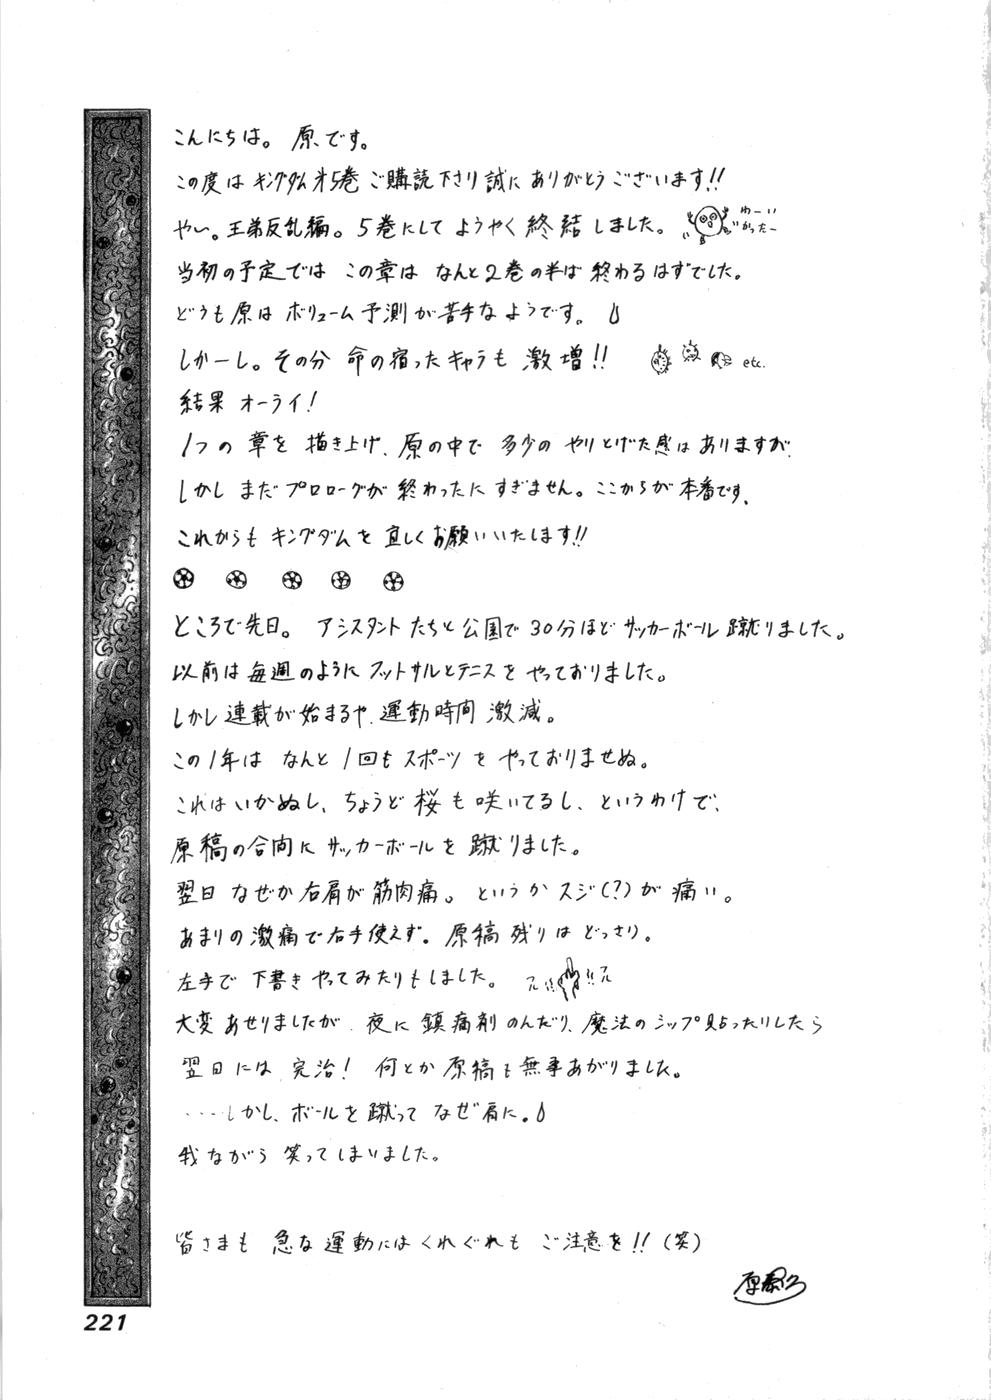 こんにちは。 原です。
この度は キングダム㐧5巻 ご購読下さり 誠に ありがとうございます!!
やい。王弟反乱編。5巻にして ようやく 終結 しました。
わーい
かったー
当初の予定では この章は なんと2巻の半ば 終わる はずでした。
どうも 原は ボリューム予測が苦手なようです。
しかーし。その分 命の宿ったキャラも 激増!!
etc.
結果 オーライ!
1つの 章を 描き上げ、原の中で 多少の やりとげた感は ありますが、
しかし まだ プロローグが 終わったに すぎません。ここからが本番です。
これからも キングダムを 宜しく お願いいたします!!
ところで先日。 アシスタントたちと 公園で 30分ほど サッカーボール 蹴りました。
以前は 毎週のように フットサルとテニスを やっておりました。
しかし 連載が始まるや、運動時間 激減。
この1年は なんと 1回もスポーツを やっておりませぬ。
これは いかぬし、ちょうど 桜も 咲いてるし、というわけで、
原稿の合間に サッカーボールを 蹴りました。
翌日 なぜか右肩が 筋肉痛。 というか スジ(?)が 痛い。
あまりの 激痛で 右手使えず。 原稿 残りは どっさり。
左手で 下書き やってみたりもしました。
大変 あせりましたが、夜に 鎮痛剤 のんだり、魔法のシップ貼ったりしたら
翌日には 完治! 何とか 原稿も 無事あがりました。
……しかし、ボールを 蹴って なぜ 肩に。
我ながら 笑ってしまいました。
皆さまも 急な 運動には くれぐれも ご注意を!! (笑)
原泰久
221